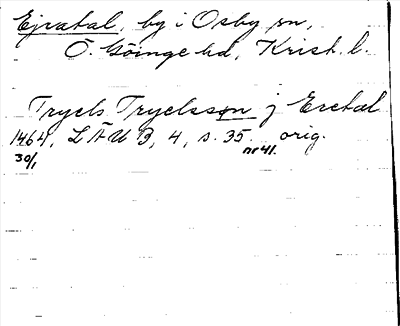 Ejratal, by i Osby sn,
Ö. Göinge hd, Krist. l.
Trycls Tryclsson j Eretal
1464, LÄUB, 4, s. 35. orig.
30/1 nr 41.